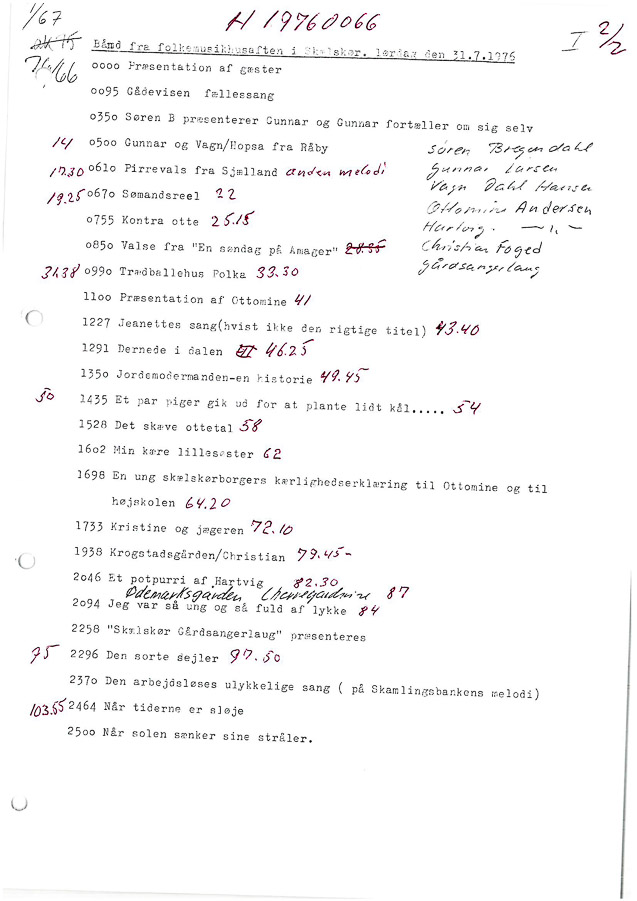 1/67
H 19760066
I 2/2
Bånd fra folkemusikhusaften i Skælskør. lørdag den 31.7.1976
oooo Præsentation af gæster
oo95 Gådevisen fællessang
o35o Søren B præsenterer Gunnar og Gunnar fortæller om sig selv
14 o5oo Gunnar og Vagn/Hopsa fra Råby
Søren Bregendahl
17.30 o61o Pirrevals fra Sjælland anden melodi
Gunnar Larsen
19.25 o67o Sømandsreel 22
Vagn Dahl Hansen
o755 Kontra otte 25.15
Ottomine Andersen
Hartvig. — " —
o85o Valse fra "En søndag på Amager" 28.35
Christian Foged
31.38 o99o Trædballehus Polka 33.30
gårdsangerlaug
11oo Præsentation af Ottomine 41
1227 Jeanettes sang(hvist ikke den rigtige titel) 43.40
1291 Dernede i dalen 46.25
135o Jordemodermanden-en historie 49.45
50 1435 Et par piger gik ud for at plante lidt kål..... 54
1528 Det skæve ottetal 58
16o2 Min kære lillesøster 62
1698 En ung skælskørborgers kærlighedserklæring til Ottomine og til
højskolen 64.20
1733 Kristine og jægeren 72.10
1938 Krogstadsgården/Christian 79.45-
2o46 Et potpurri af Hartvig 82.30
Ødemarksgården 87
2o94 Jeg var så ung og så fuld af lykke 84
2258 "Skælskør Gårdsangerlaug" præsenteres
75 2296 Den sorte sejler 97.50
237o Den arbejdsløses ulykkelige sang ( på Skamlingsbankens melodi)
103.55 2464 Når tiderne er sløje
25oo Når solen sænker sine stråler.